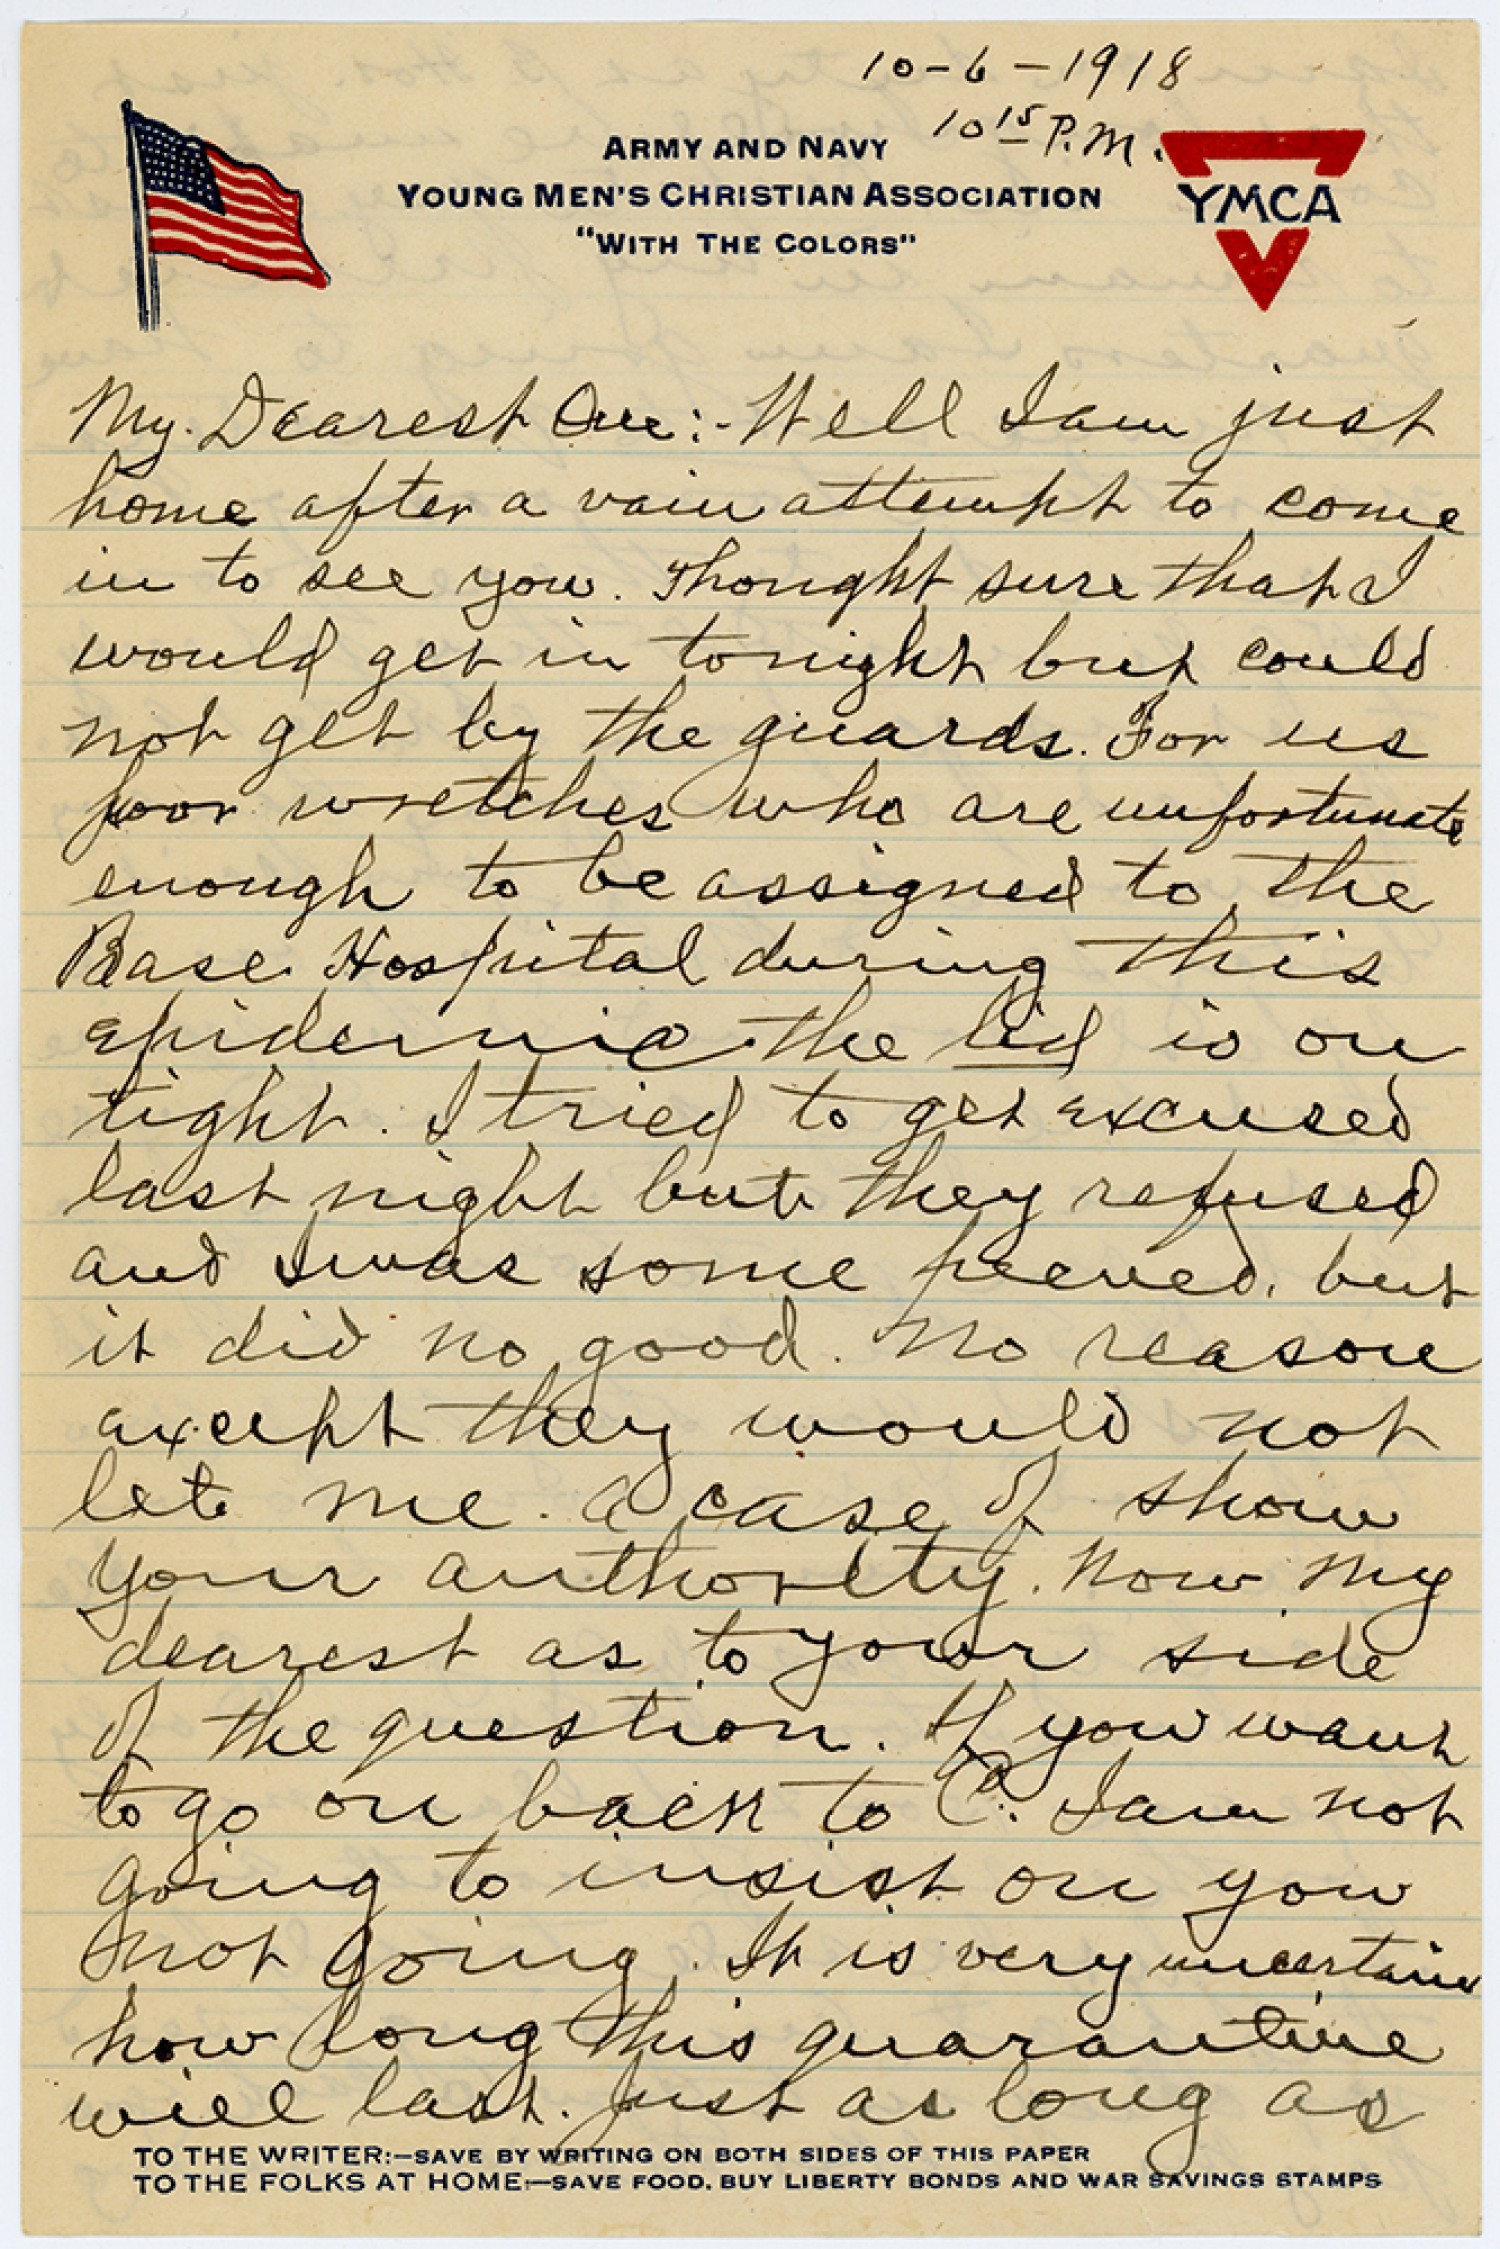 10-6-1918
10 15 P.M.
ARMY AND NAVY
YOUNG MEN'S CHRISTIAN ASSOCIATION
"WITH THE COLORS"
YMCA
My Dearest One:- Well I am just
home after a vain attempt to come
in to see you. Thought sure that I
would get in tonight but could
not get by the guards. For us
poor wretches who are unfortunate
enough to be assigned to the
Base Hospital during this
epidemic the lid is on
tight. I tried to get excused
last night but they refused
and I was some peeved, but
it did no good. No reason
except they would not
let me. A case of show
your authority. Now my
dearest as to your side
of the question. If you want
to go on back to Pa. I am not
going to insist on you
not going. It is very uncertain
how long this quarantine
will last. Just as long as
TO THE WRITER:—SAVE BY WRITING ON BOTH SIDES OF THIS PAPER
TO THE FOLKS AT HOME:—SAVE FOOD, BUY LIBERTY BONDS AND WAR SAVINGS STAMPS